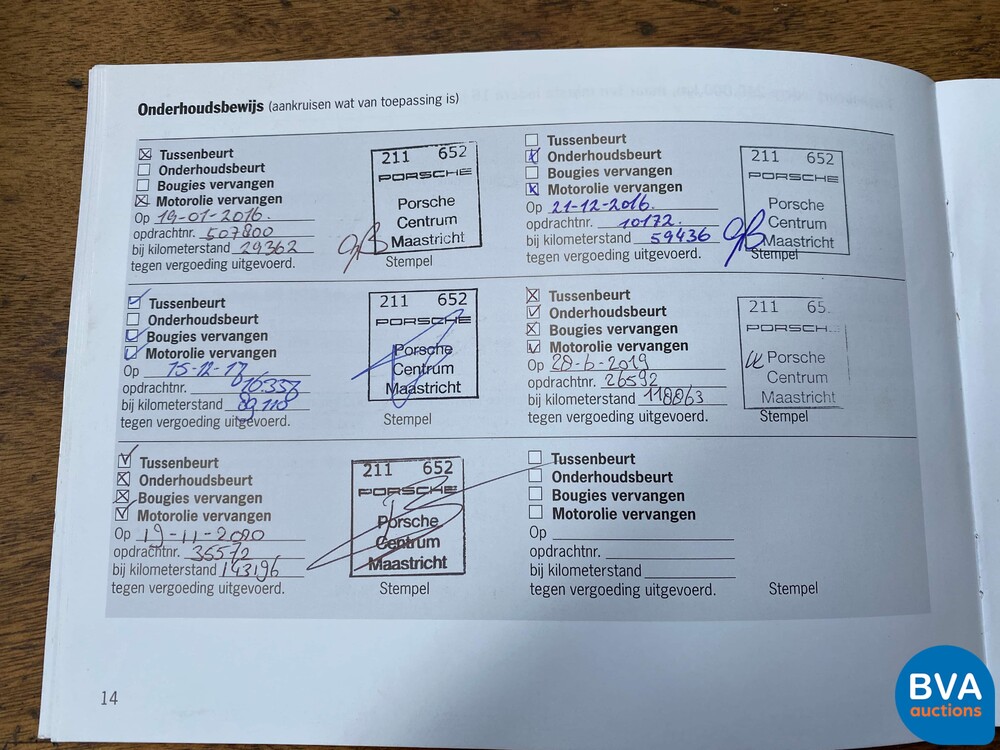 Onderhoudsbewijs (aankruisen wat van toepassing is)
Tussenbeurt
Onderhoudsbeurt
Bougies vervangen
Motorolie vervangen
Op 19-01-2016.
opdrachtnr. 507800
bij kilometerstand 29362
tegen vergoeding uitgevoerd.
211 652
PORSCHE
Porsche
Centrum
Maastricht
Stempel
Tussenbeurt
Onderhoudsbeurt
Bougies vervangen
Motorolie vervangen
Op 21-12-2016.
opdrachtnr. 10172.
bij kilometerstand 59436
tegen vergoeding uitgevoerd.
211 652
PORSCHE
Porsche
Centrum
Maastricht
Stempel
Tussenbeurt
Onderhoudsbeurt
Bougies vervangen
Motorolie vervangen
Op 15-12-17
opdrachtnr. 16.338
bij kilometerstand 89110
tegen vergoeding uitgevoerd.
211 652
PORSCHE
Porsche
Centrum
Maastricht
Stempel
Tussenbeurt
Onderhoudsbeurt
Bougies vervangen
Motorolie vervangen
Op 28-6-2019
opdrachtnr. 26592
bij kilometerstand 118863
tegen vergoeding uitgevoerd.
211 65
PORSCH
Porsche
Centrum
Maastricht
Stempel
Tussenbeurt
Onderhoudsbeurt
Bougies vervangen
Motorolie vervangen
Op 19-11-2020
opdrachtnr. 35572
bij kilometerstand 143196
tegen vergoeding uitgevoerd.
211 652
PORSCHE
Porsche
Centrum
Maastricht
Stempel
Tussenbeurt
Onderhoudsbeurt
Bougies vervangen
Motorolie vervangen
Op
opdrachtnr.
bij kilometerstand
tegen vergoeding uitgevoerd.
Stempel
14
BVA
auctions